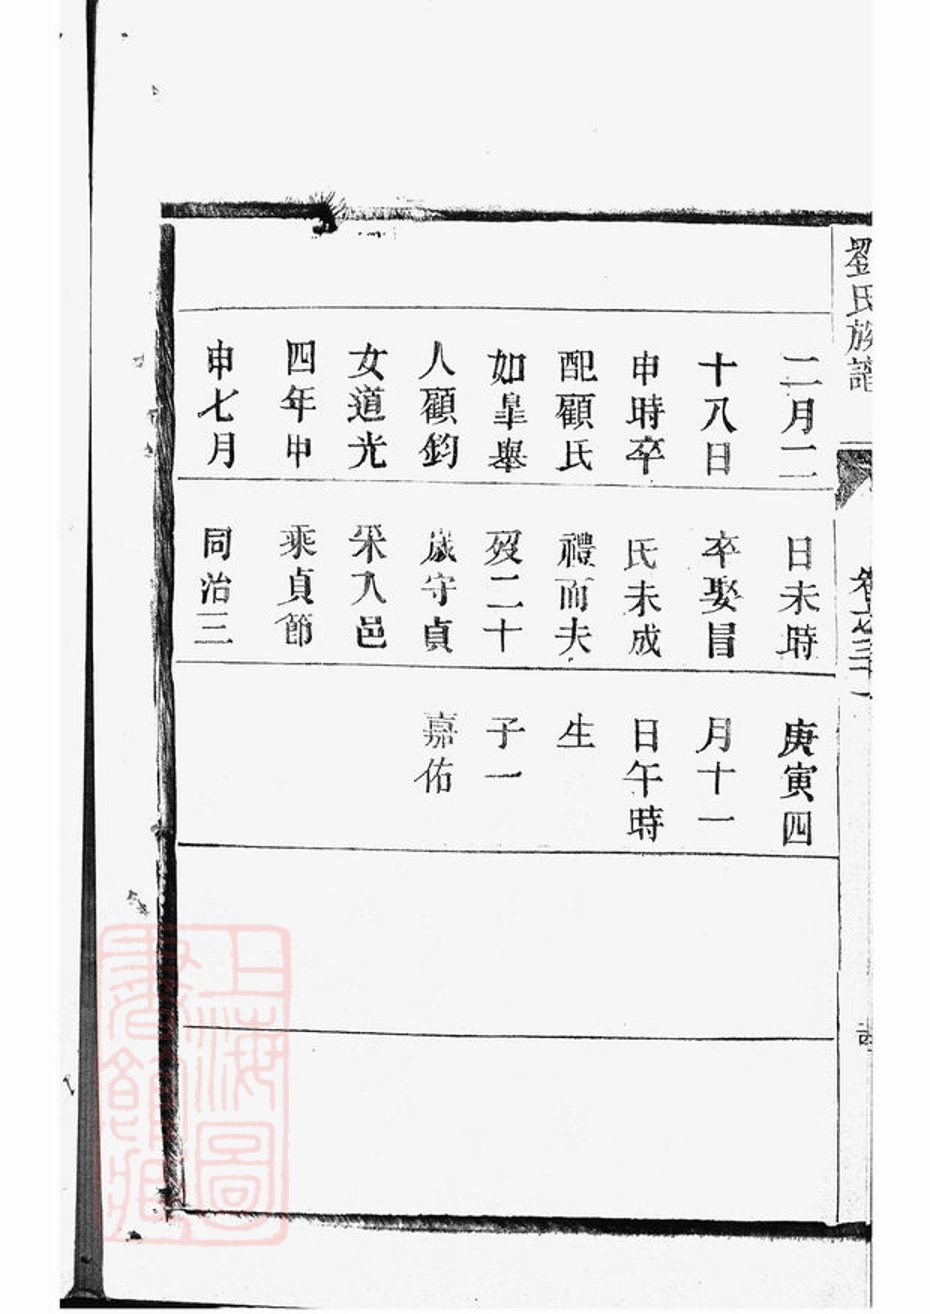 劉氏族譜
卷之三十一
二月二
十八日
申時卒
配顧氏
如皐舉
人顧鈞
女道光
四年甲
申七月
日未時
卒娶冒
氏未成
禮而夫
歿二十
歲守貞
采入邑
乘貞節
同治三
庚寅四
月十一
日午時
生
子一
嘉佑
上海圖
書館藏